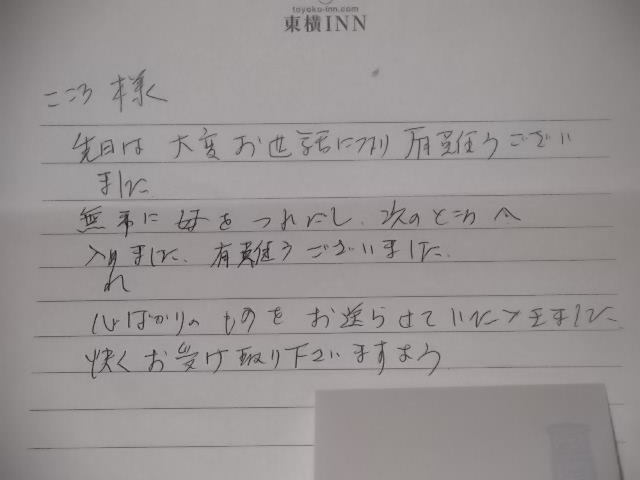 toyoko-inn.com
東横INN
こころ 様
先日は 大変 お世話になり 有難うござい
ました
無事に 母を つれだし、次のところへ
入りました、有難うございました、
れ
心ばかりの ものを お送らせて いただきました
快く お受け取り下さいますよう